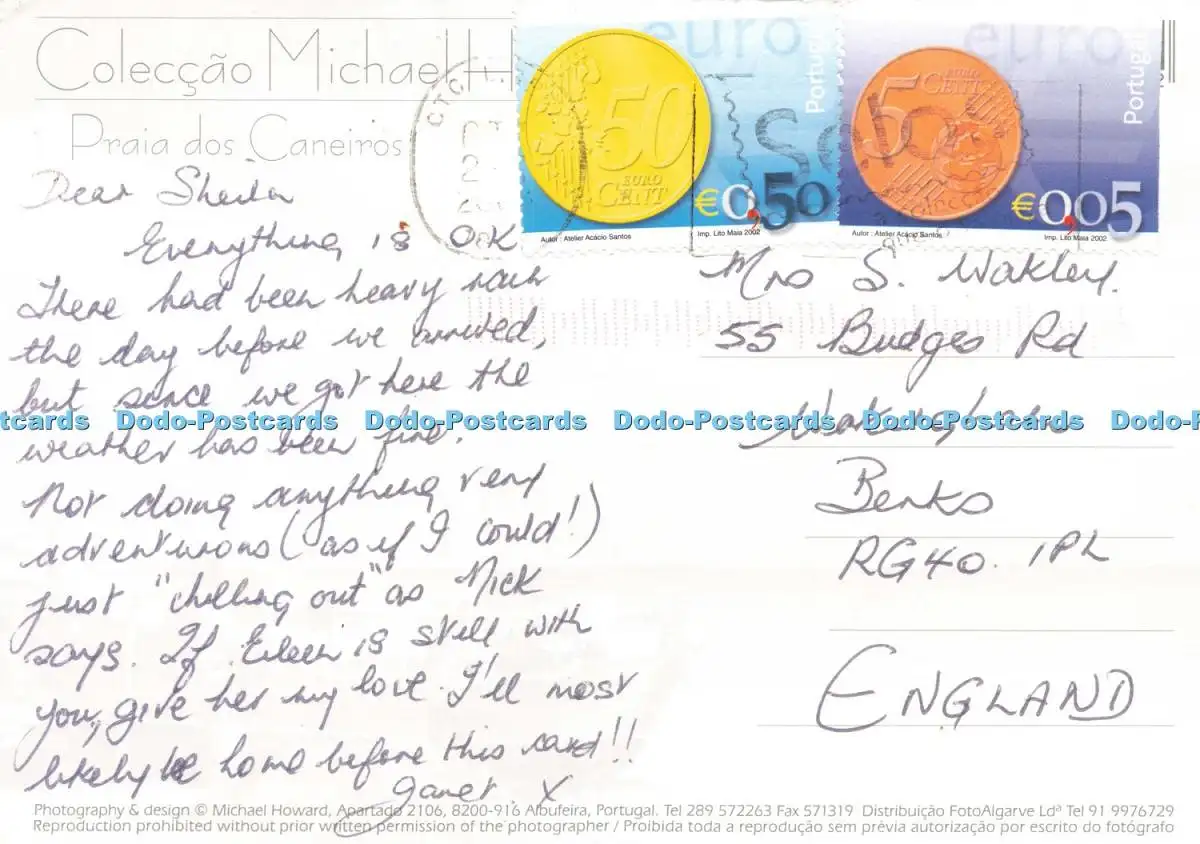 Colecção Michael H
Praia dos Caneiros
euro
Portugal
50
EURO
CENT
€0,50
Autor : Atelier Acácio Santos
Imp. Lito Maia 2002
euro
Portugal
5
EURO
CENT
€0,05
Autor : Atelier Acácio Santos
Imp. Lito Maia 2002
Dear Sheila
Everything is OK
There had been heavy rain
the day before we arrived,
but since we got here the
weather has been fine.
Not doing anything very
adventurous (as if I could!)
just "chilling out" as Nick
says. If Eileen is still with
you, give her my love. I'll most
likely be home before this card!!
Janet. X
Mrs S. Wakley.
55 Budges Rd
Wokingham
Berks
RG40. 1PL
ENGLAND
tcards Dodo-Postcards Dodo-Postcards Dodo-Postcards Dodo-Postcards Dodo-
Photography & design © Michael Howard, Apartado 2106, 8200-916 Albufeira, Portugal. Tel 289 572263 Fax 571319 Distribuição FotoAlgarve Ldª Tel 91 9976729
Reproduction prohibited without prior written permission of the photographer / Proibida toda a reprodução sem prévia autorização por escrito do fotógrafo